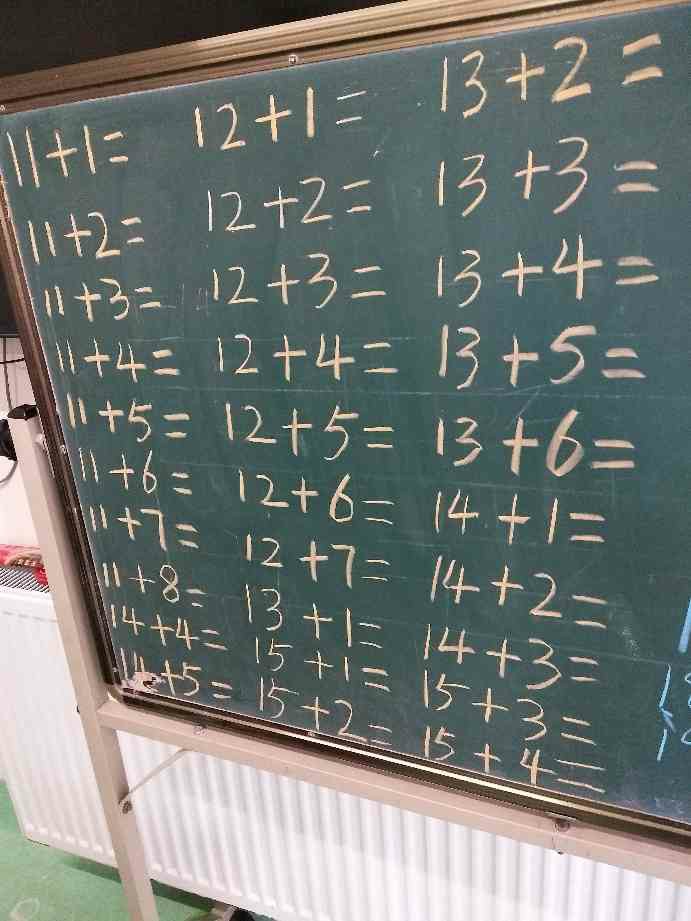 11+1= 12+1= 13+2=
11+2= 12+2= 13+3=
11+3= 12+3= 13+4=
11+4= 12+4= 13+5=
11+5= 12+5= 13+6=
11+6= 12+6= 14+1=
11+7= 12+7= 14+2=
11+8= 13+1= 14+3=
14+4= 15+1= 15+3=
14+5= 15+2= 15+4=